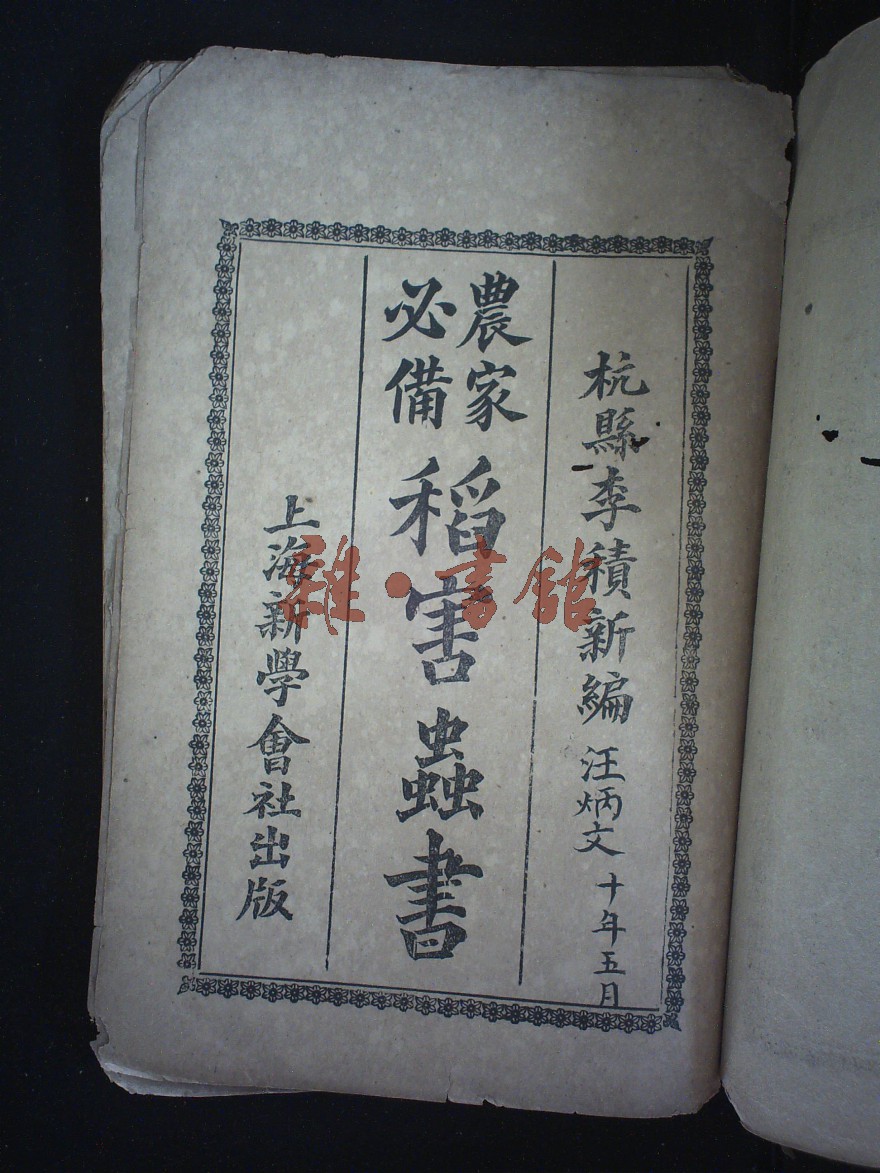 杭縣李積新編 汪炳文 十年五月
農家
必備
稻害蟲書
上海新學會社出版
雜·書館